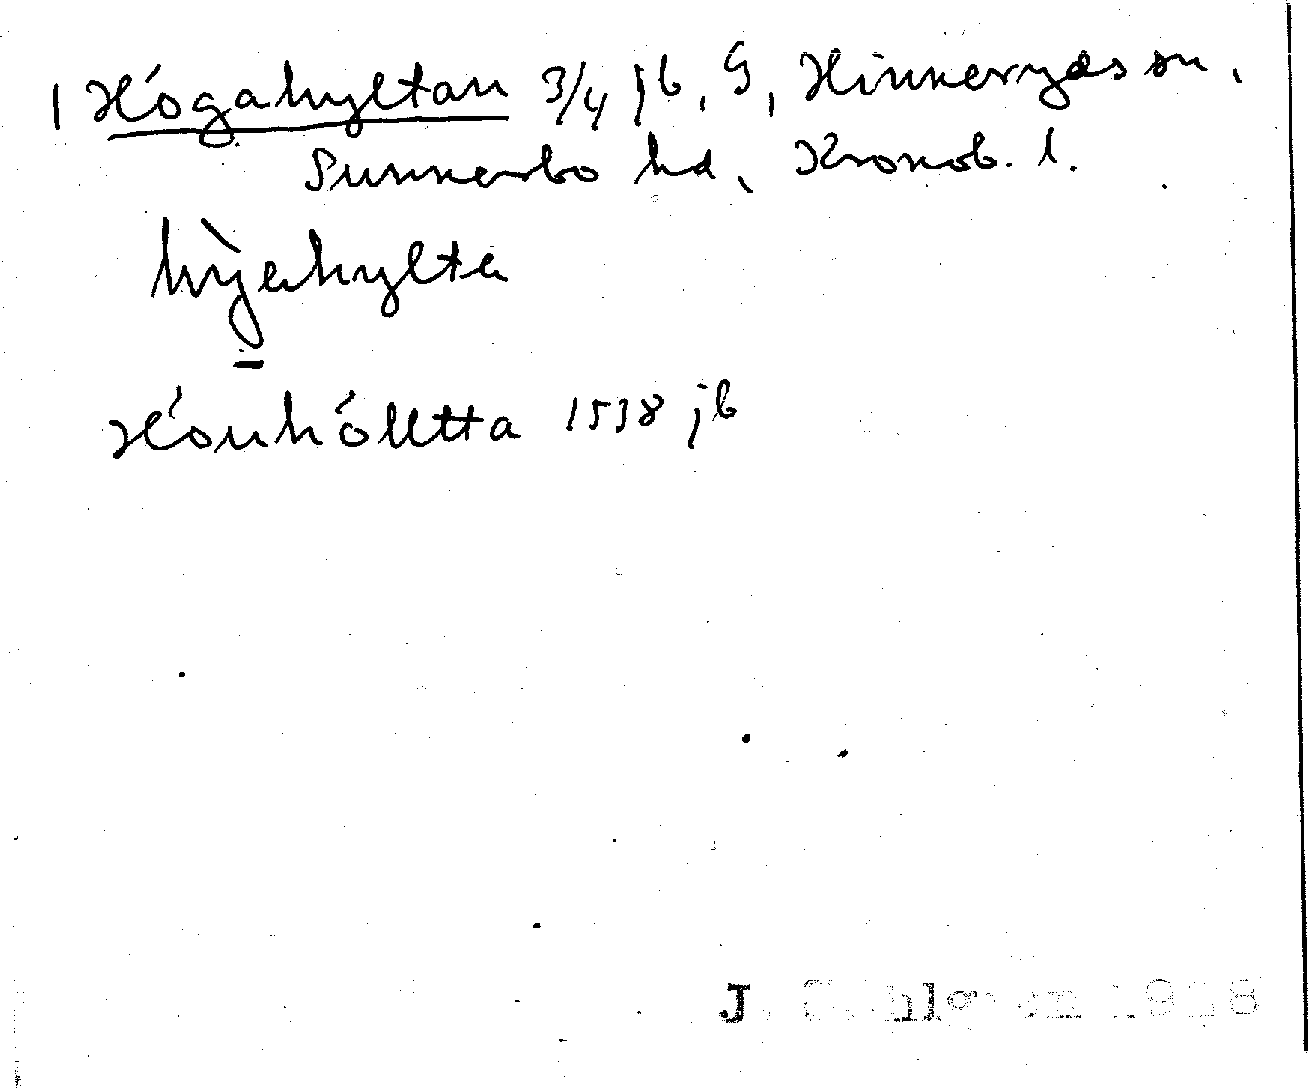 1 Högahyltan 3/4 jb, G, Hinneryds sn,
Sunnerbo hd, Kronob. l.
hỳahylta
Höuhölltta 1538 jb
J. Sahlgren 1928